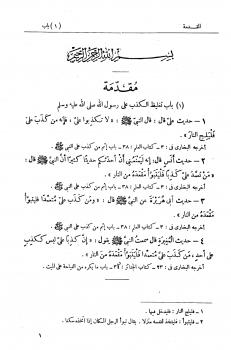 المقدمة (١) باب
بسم الله الرحمن الرحيم
مقدمة
(١) باب تغليظ الكذب على رسول الله صلى الله عليه وسلم
١ – حديث عليّ، قال: قال النبيّ ﷺ: « لا تكذبوا عليّ، فإنه من كذب عليّ
فليلج النار ».
أخرجه البخارى فى: ٣ – كتاب العلم: ٣٨ – باب إثم من كذب على النبى ﷺ
٢ – حديث أنس، قال: إنه ليمنعني أن أحدثكم حديثًا كثيرًا أنّ النبيّ ﷺ، قال:
« من تعمد عليّ كذبًا فليتبوّأ مقعده من النار ».
أخرجه البخارى فى: ٣ – كتاب العلم: ٣٨ – باب إثم من كذب على النبى ﷺ
٣ – حديث أبي هريرة عن النبيّ ﷺ، قال: « ومن كذب عليّ متعمدًا فليتبوّأ
مقعده من النار ».
أخرجه البخارى فى: ٣ – كتاب العلم: ٣٨ – باب إثم من كذب على النبى ﷺ
٤ – حديث المغيرة قال سمعت النبيّ ﷺ يقول: « إن كذبًا عليّ ليس ككذب
على أحد، من كذب عليّ متعمدًا فليتبوّأ مقعده من النار ».
أخرجه البخارى فى: ٢٣ – كتاب الجنائز: ٣٤ – باب ما يكره من النياحة على الميت.
١ – فليلج النار: فليدخل فيها.
٢ – فليتبوأ: فليتخذ لنفسه منزلا. يقال تبوأ الرجل المكان إذا اتخذه سكنا.
١